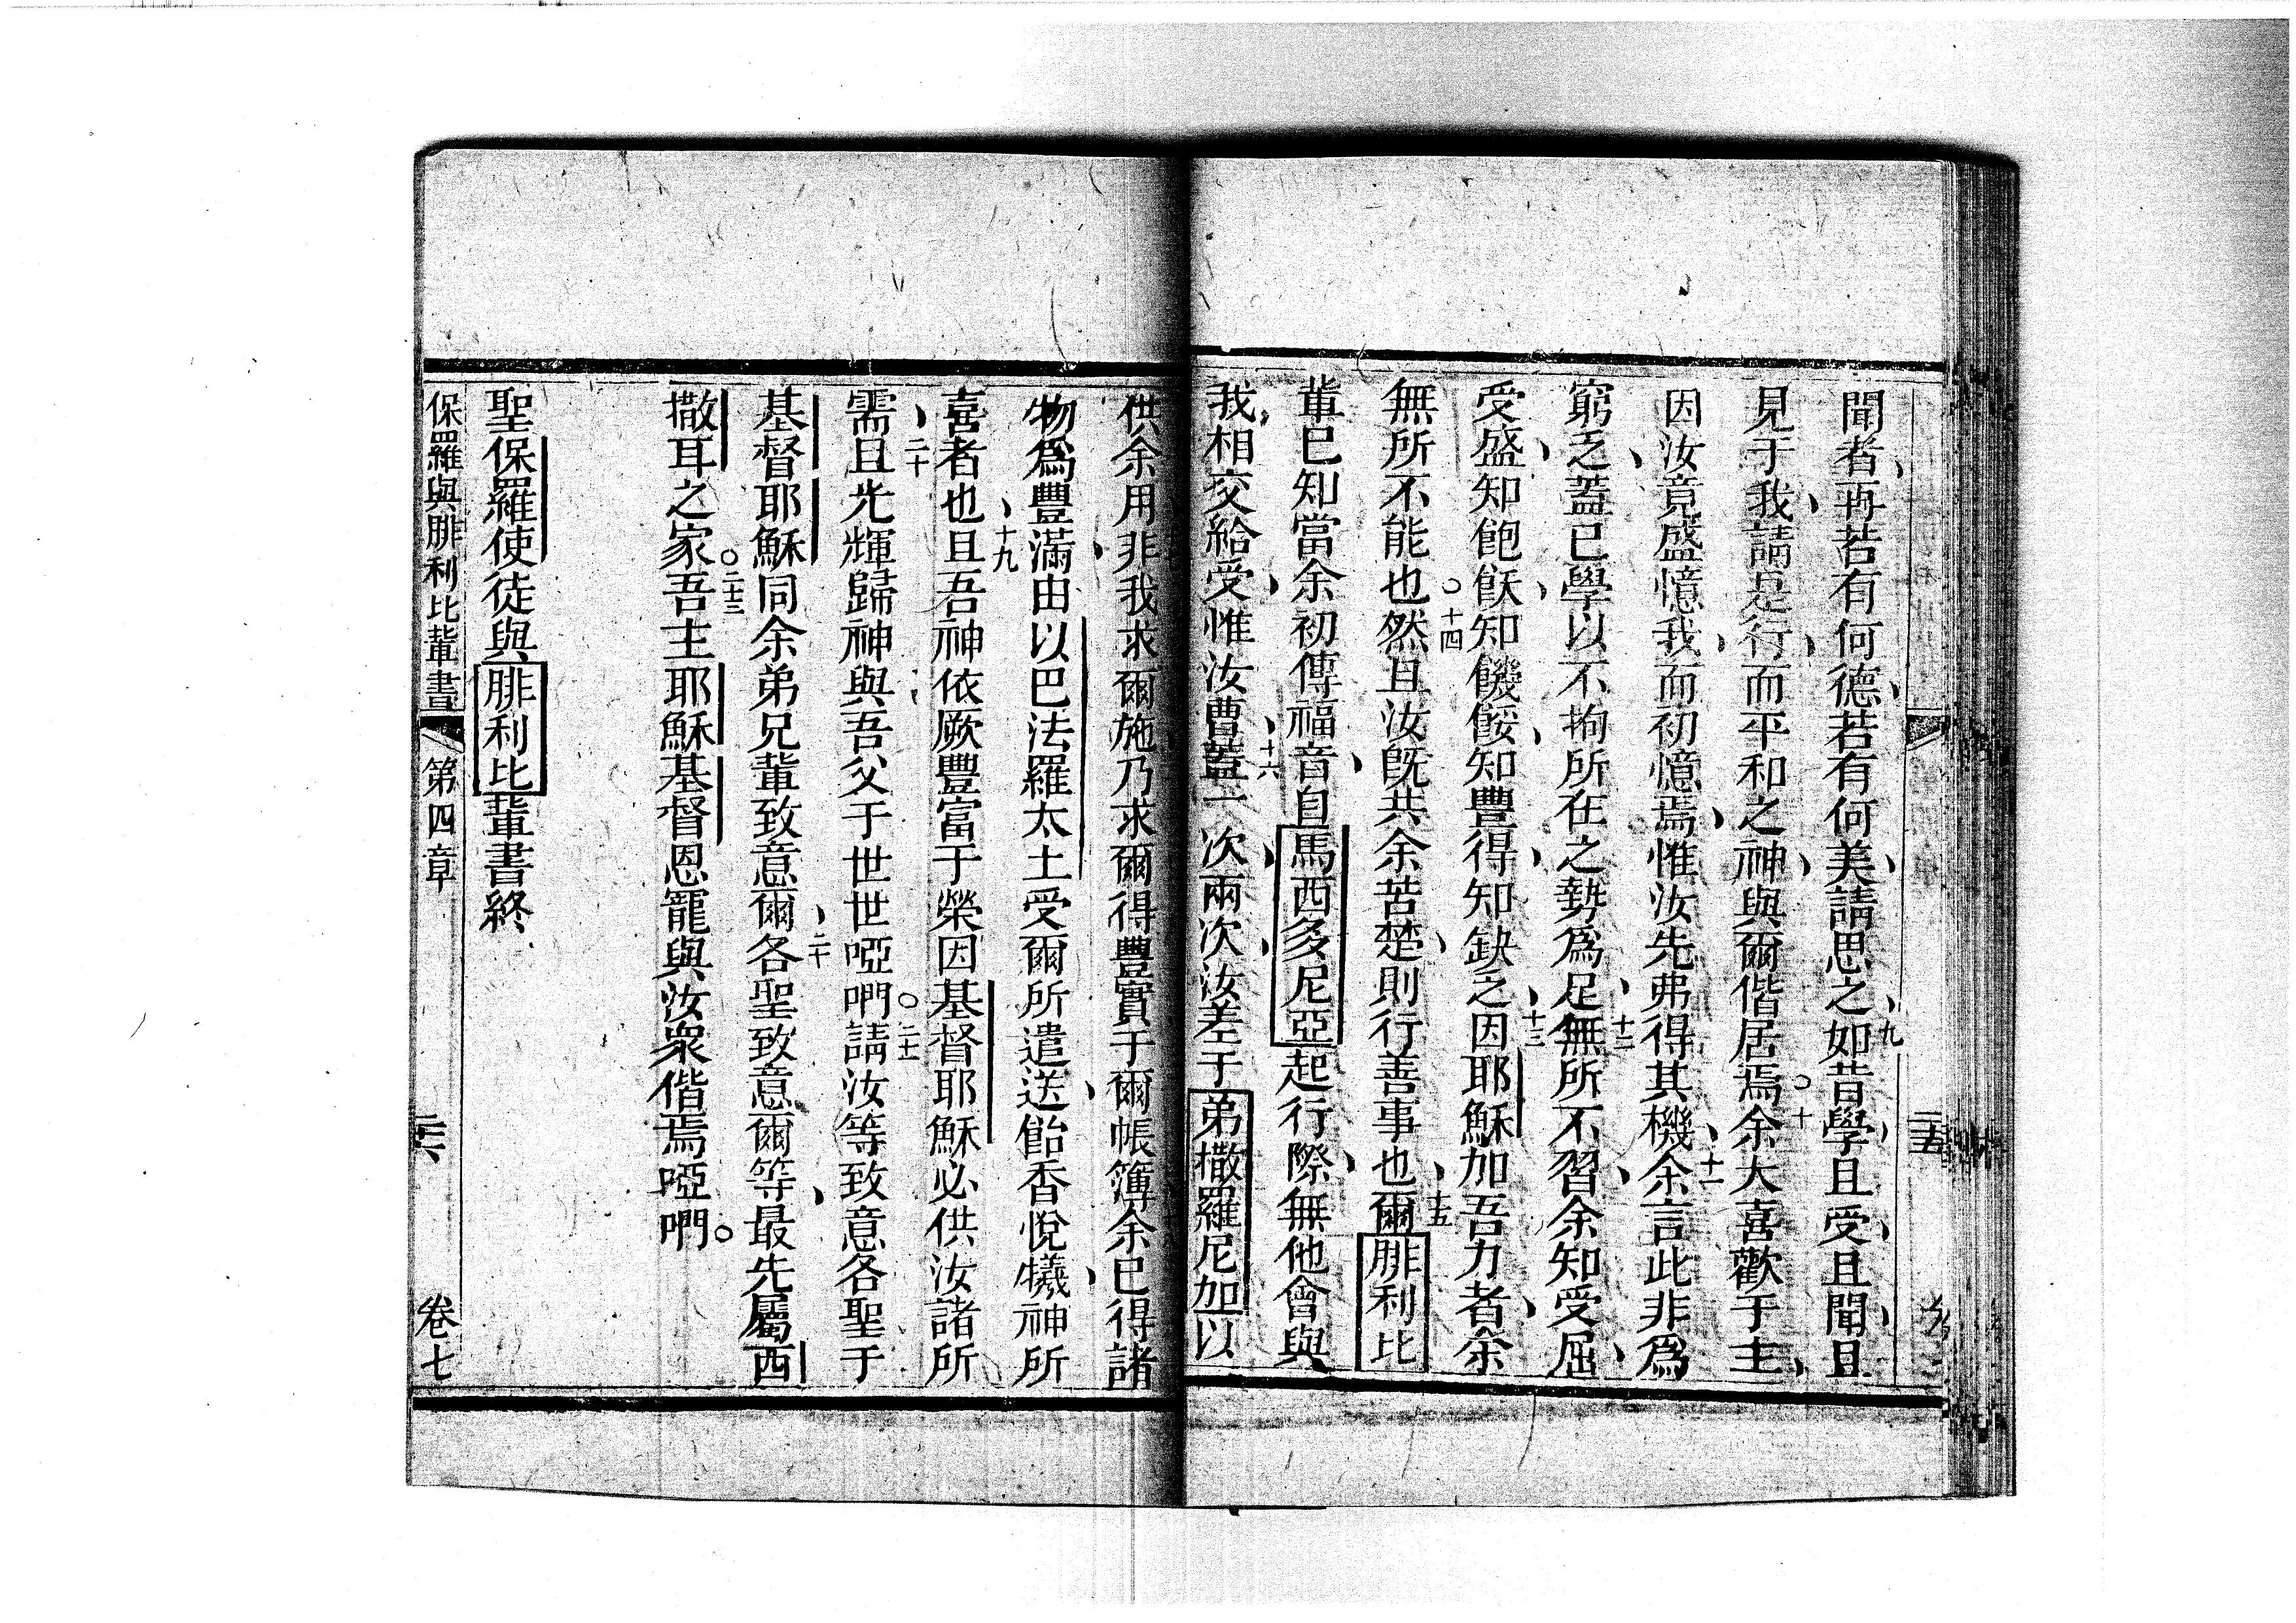 聞者、再若有何德、若有何美、請思之、九如昔學、且受、且聞、且
見于我、請是行、而平和之神、與爾偕居焉。十余大喜歡于主、
因汝竟盛憶我、而初憶焉、惟汝先弗得其機、十一余言此非為
窮乏、蓋已學以不拘所在之勢為足、十二無所不習、余知受屈、
受盛、知飽飫、知饑餒、知豐得、知缺乏、十三因耶穌加吾力者、余
無所不能也。十四然且汝既共余苦楚、則行善事也、十五爾腓利比
輩已知當余初傳福音、自馬西多尼亞起行際、無他會與
我、相交給受、惟汝曹、十六蓋一次、兩次、汝差于弟撒羅尼加以
供余用、非我求爾施、乃求爾得豐實于爾帳簿、余已得諸
物為豐滿、由以巴法羅太土受爾所遣送、飴香悅犧、神所
喜者也、十九且吾神依厥豐富于榮因基督耶穌必供汝諸所
需、二十且光輝歸神與吾父于世世啞㖿。二十一請汝等致意各聖于
基督耶穌同余弟兄輩致意爾、二十各聖致意爾等、最先屬西
撒耳之家。二十三吾主耶穌基督恩寵與汝眾偕焉啞㖿。
聖保羅使徒與腓利比輩書終
保羅與腓利比輩書 第四章 二十六 卷七